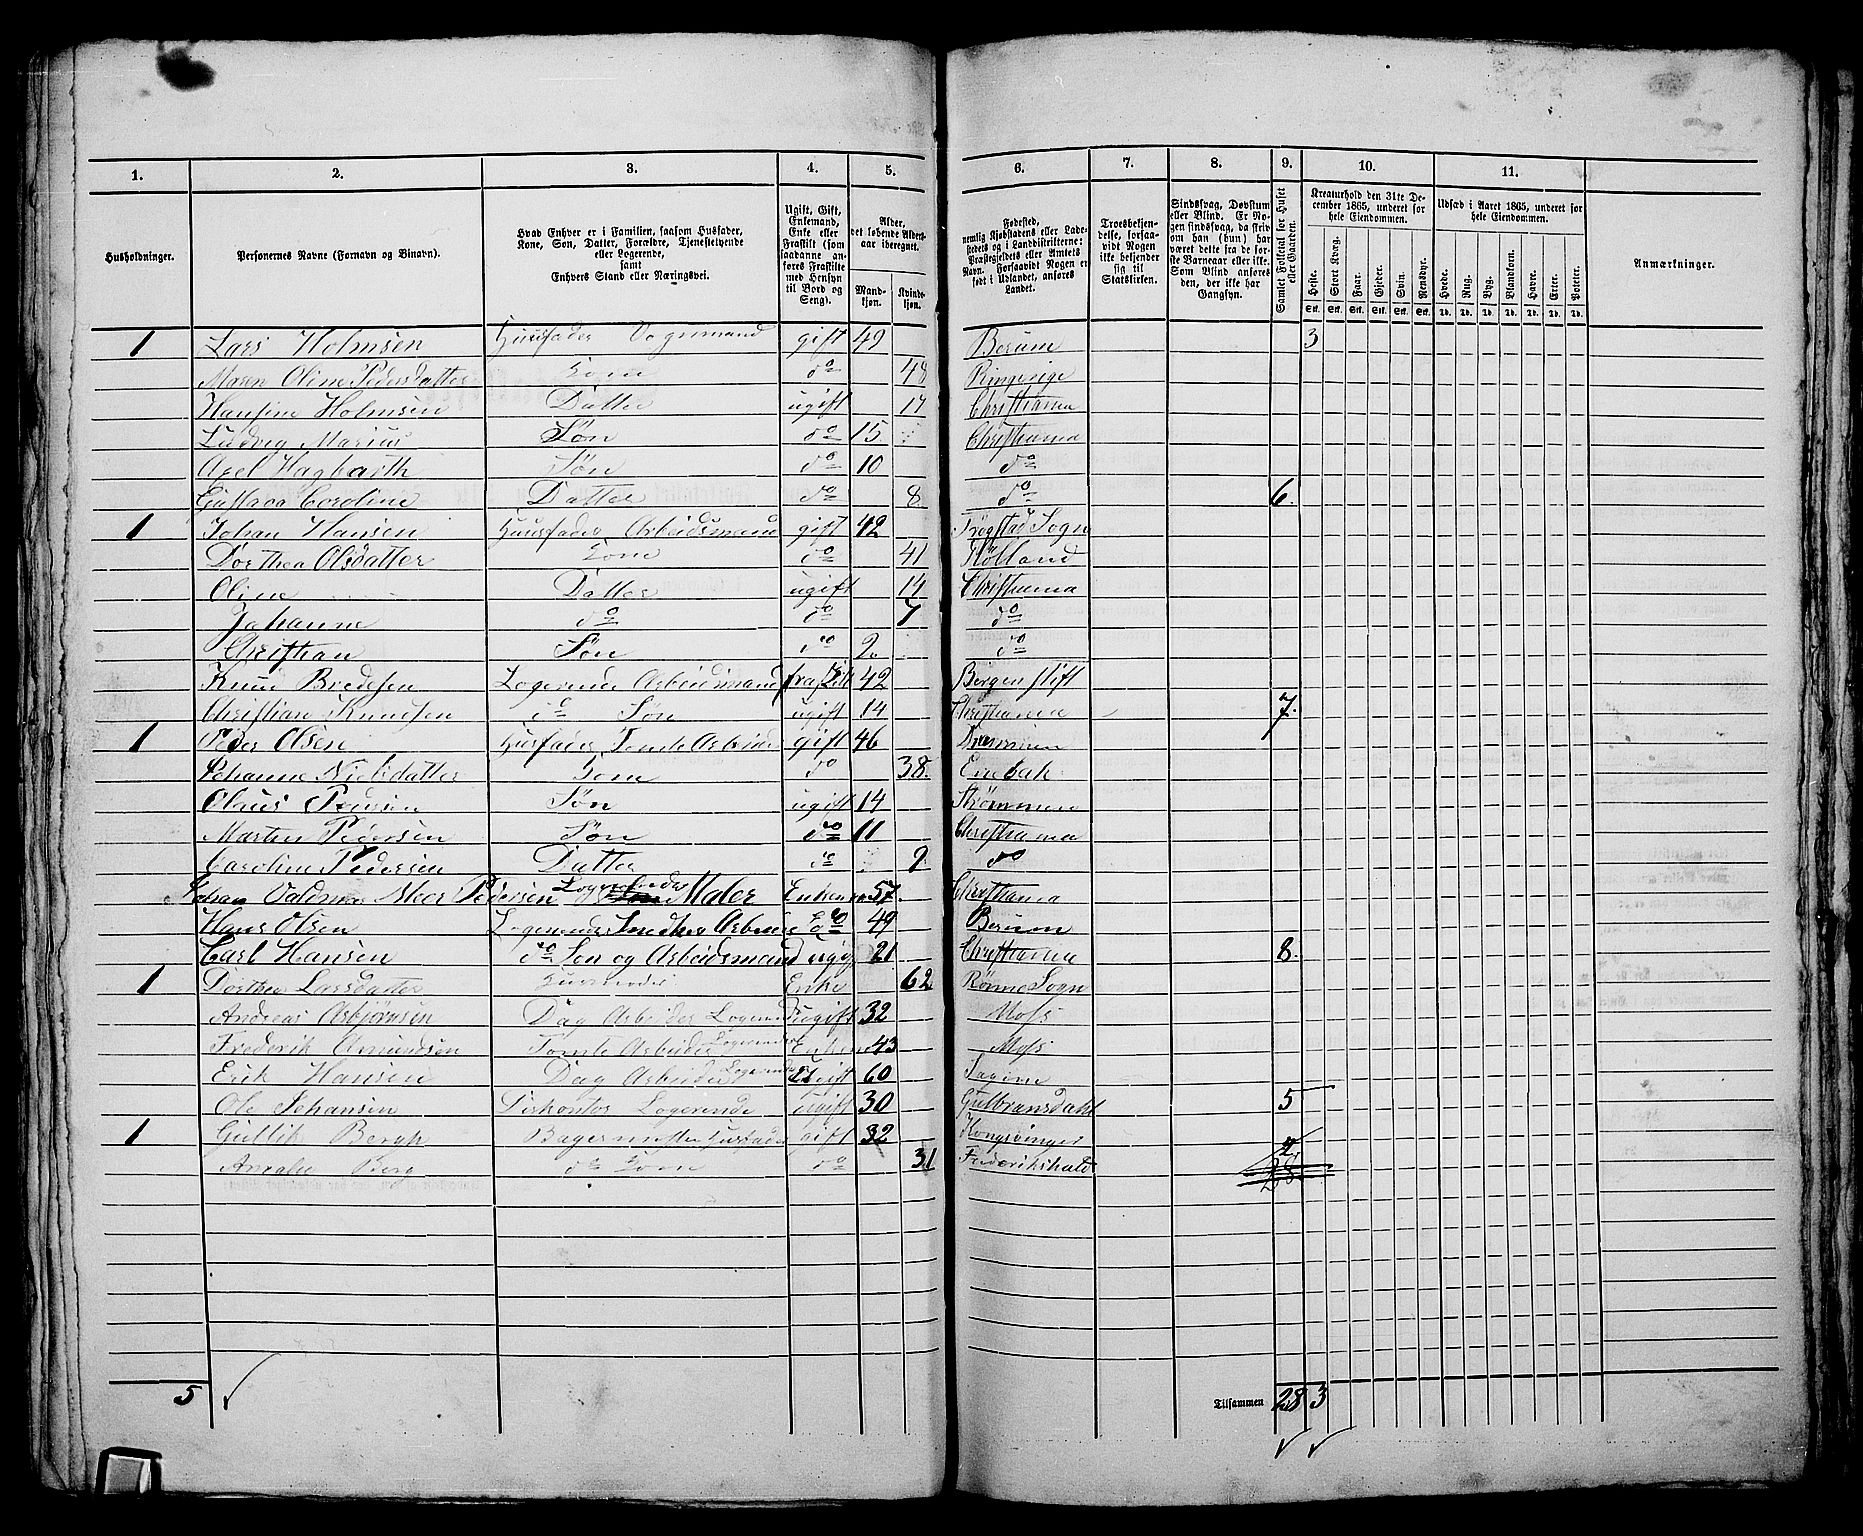 1. 2. 3. 4. 5. 6. 7. 8. 9. 10. 11.
Husholdninger.
Personernes Navne (Fornavn og Binavn).
Hvad Enhver er i Familien, saasom Husfader, Kone, Søn, Datter, Forældre, Tjenestetyende eller Logerende, samt Enhvers Stand eller Næringsvei.
Ugift, Gift, Enkemand, Enke eller Fraskilt (som saadanne anføres Fraskilte med Hensyn til Bord og Seng).
Alder, det løbende Aldersaar iberegnet.
Mandkjøn. Kvindekjøn.
Fødested, nemlig Kjøbstadens eller Ladestedets og i Landdistrikterne: Præstegjeldets eller Amtets Navn. Forsaavidt Nogen er født i Udlandet, anføres Landet.
Troesbekjendelse, forsaavidt Nogen ikke bekjender sig til Statskirken.
Sindssvag, Døvstum eller Blind. Er Nogen sindssvag, da skrives, om han (hun) har været dette fra de første Barneaar eller ikke. Som Blind anføres den, der ikke har Gangsyn.
Samlet Folketal for Huset eller Gaarden.
Kreaturhold den 31te December 1865, underet for hele Eiendommen.
Heste. Stort Kvæg. Faar. Gjeder. Svin. Rensdyr.
Stk. Stk. Stk. Stk. Stk. Stk.
Udsæd i Aaret 1865, underet for hele Eiendommen.
Hvede. Rug. Byg. Blandkorn. Havre. Erter. Poteter.
Td. Td. Td. Td. Td. Td. Td.
Anmærkninger.
1 Lars Holmsen Huusfader Vognmand gift 49 Berum 3
Maren Oline Pedersdatter Kone do 48 Ringerige
Hansine Holmsen Datter ugift 17 Christiania
Ludvig Marius Søn do 15 Christiania
Axel Hagbarth Søn do 10 do
Gustava Caroline Datter do 8 do 6.
1 Johan Hansen Huusfader Arbeidsmand gift 42 Trøgstad Sogn
Dorthea Olsdatter Kone do 41 Høland
Oline Datter ugift 14 Christiania
Johanne do do 7 do
Christian Søn do 2 do
Knud Bredesen Logerende Arbeidsmand fraskilt 42 Bergen stift
Christian Knudsen do Søn ugift 14 Christiania 7.
1 Peder Olsen Husfader Tomte Arbeider gift 46 Drammen
Johanne Nielsdatter Kone do 38. Enebak
Olaus Pedersen Søn ugift 14 Strømmen
Martin Pedersen Søn do 11 Christiania
Caroline Pedersen Datter do 9 do
Johan Valdmar Moer Pedersen Logerende Maler Enkem 57. Christiania
Hans Olsen Logerende Smedher Arbeide do 49 Berum
Carl Hansen do Søn og Arbeidsmand ugift 21 Christiania 8.
1 Dorthea Larsdatter Huusmoder Enke 62 Rømne Sogn
Andreas Asbjørnsen Dag Arbeider Logerende ugift 32 Moss
Frederik Amundsen Tomte Arbeider Logerende Enkem 43 Moss
Erik Hansen Dag Arbeider Logerende Ugift 60
Ole Johansen Logerende ugift 30 Gulbransdahl 5
1 Gullik Bergh Bagermester Husfader gift 32 Kongsvinger
Amalie Berg do Kone do 31 Frederikshald 2
28
5 Tilsammen 28 3